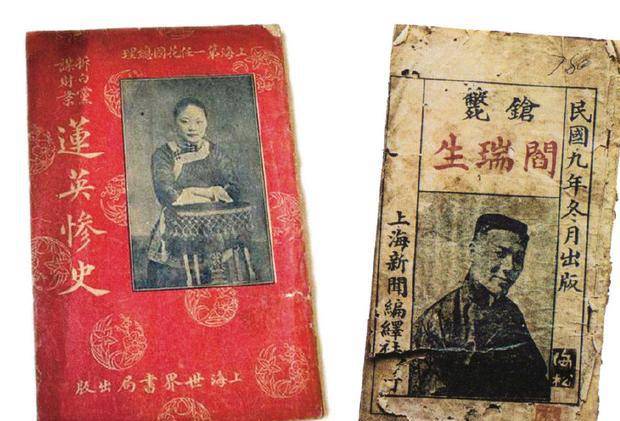 上海第一任花國總理
拆白黨
謀財案
蓮英慘史
上海世界書局出版
民國九年冬月出版
鎗斃
閻瑞生
上海新聞編繹社